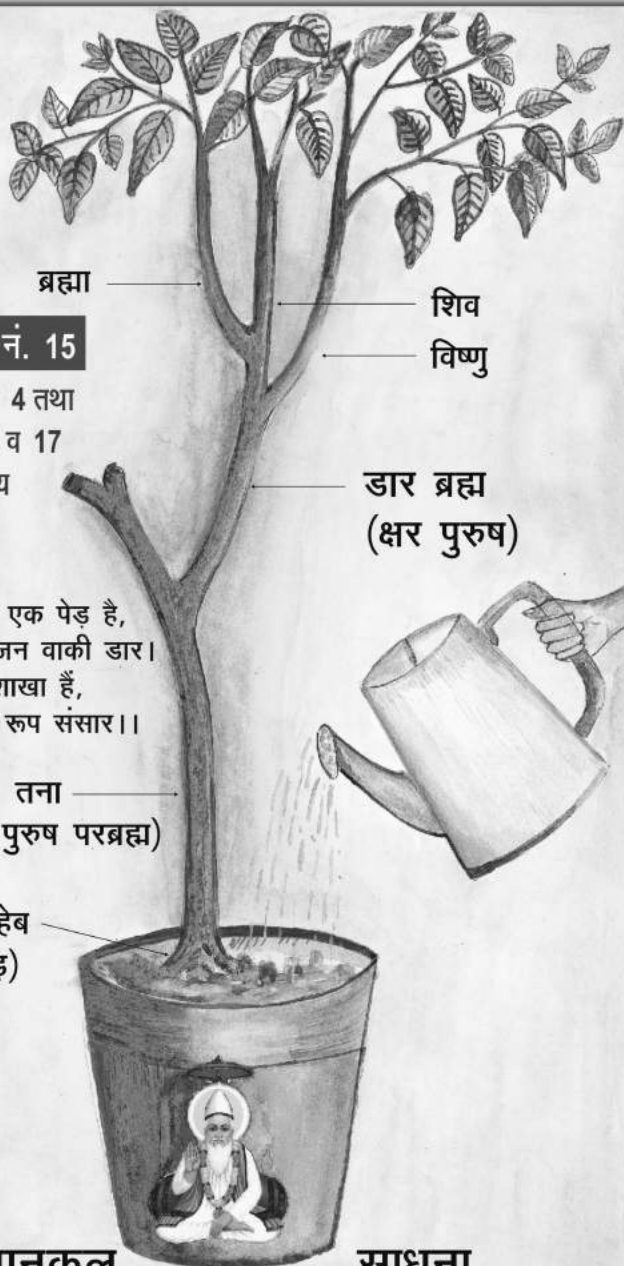 ब्रह्मा
शिव
नं. 15
विष्णु
4 तथा
व 17
डार ब्रह्म
(क्षर पुरुष)
एक पेड़ है,
वाकी डार।
शाखा हैं,
रूप संसार।।
तना
पुरुष परब्रह्म)
साधना